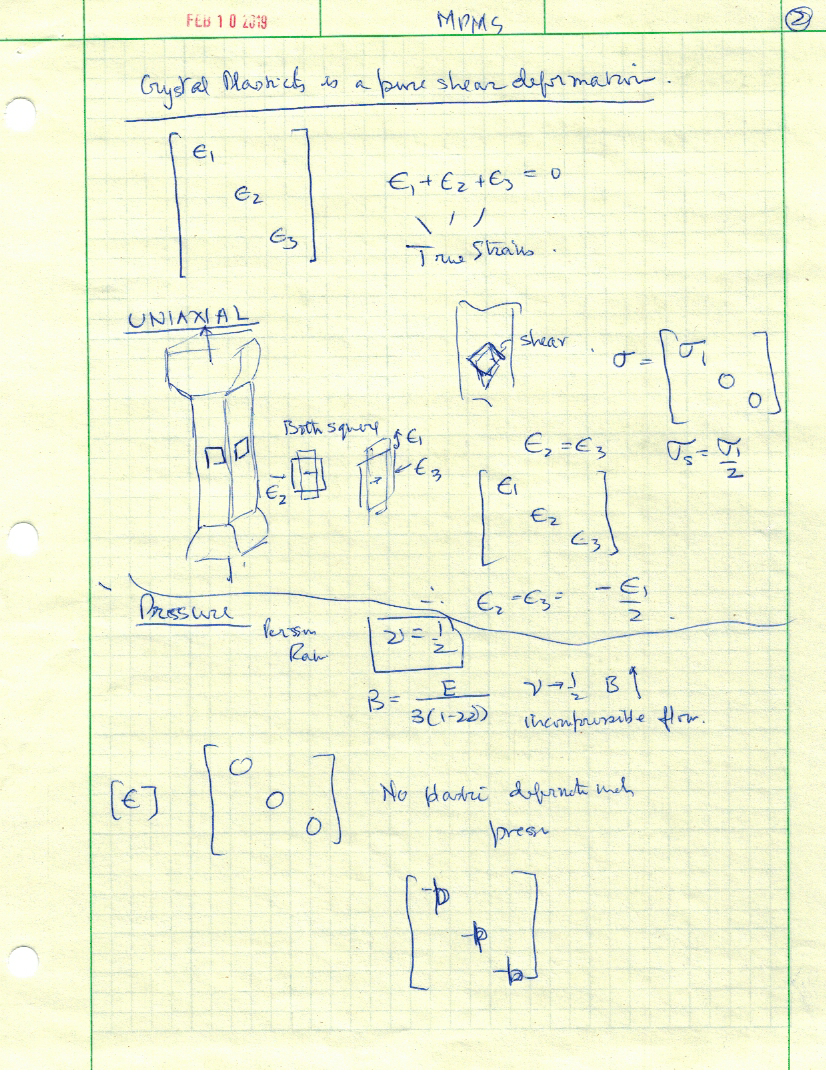 FEB 1 0 2019 MPMS 2
Crystal Plasticity is a pure shear deformation.
ϵ1
ϵ2
ϵ3
ϵ1 + ϵ2 + ϵ3 = 0
True Strains.
UNIAXIAL
shear
σ = [σ1 0 0]
Both square
ϵ1
ϵ2
ϵ3
ϵ2 = ϵ3
σs = σ1/2
ϵ1
ϵ2
ϵ3
∴ ϵ2 = ϵ3 = -ϵ1/2.
Pressure
ν = 1/2
B = E/3(1-2ν) ν → 1/2 B ↑
incompressible flow.
[ϵ] [0 0 0]
No plastic under
press
-p
-p
-p